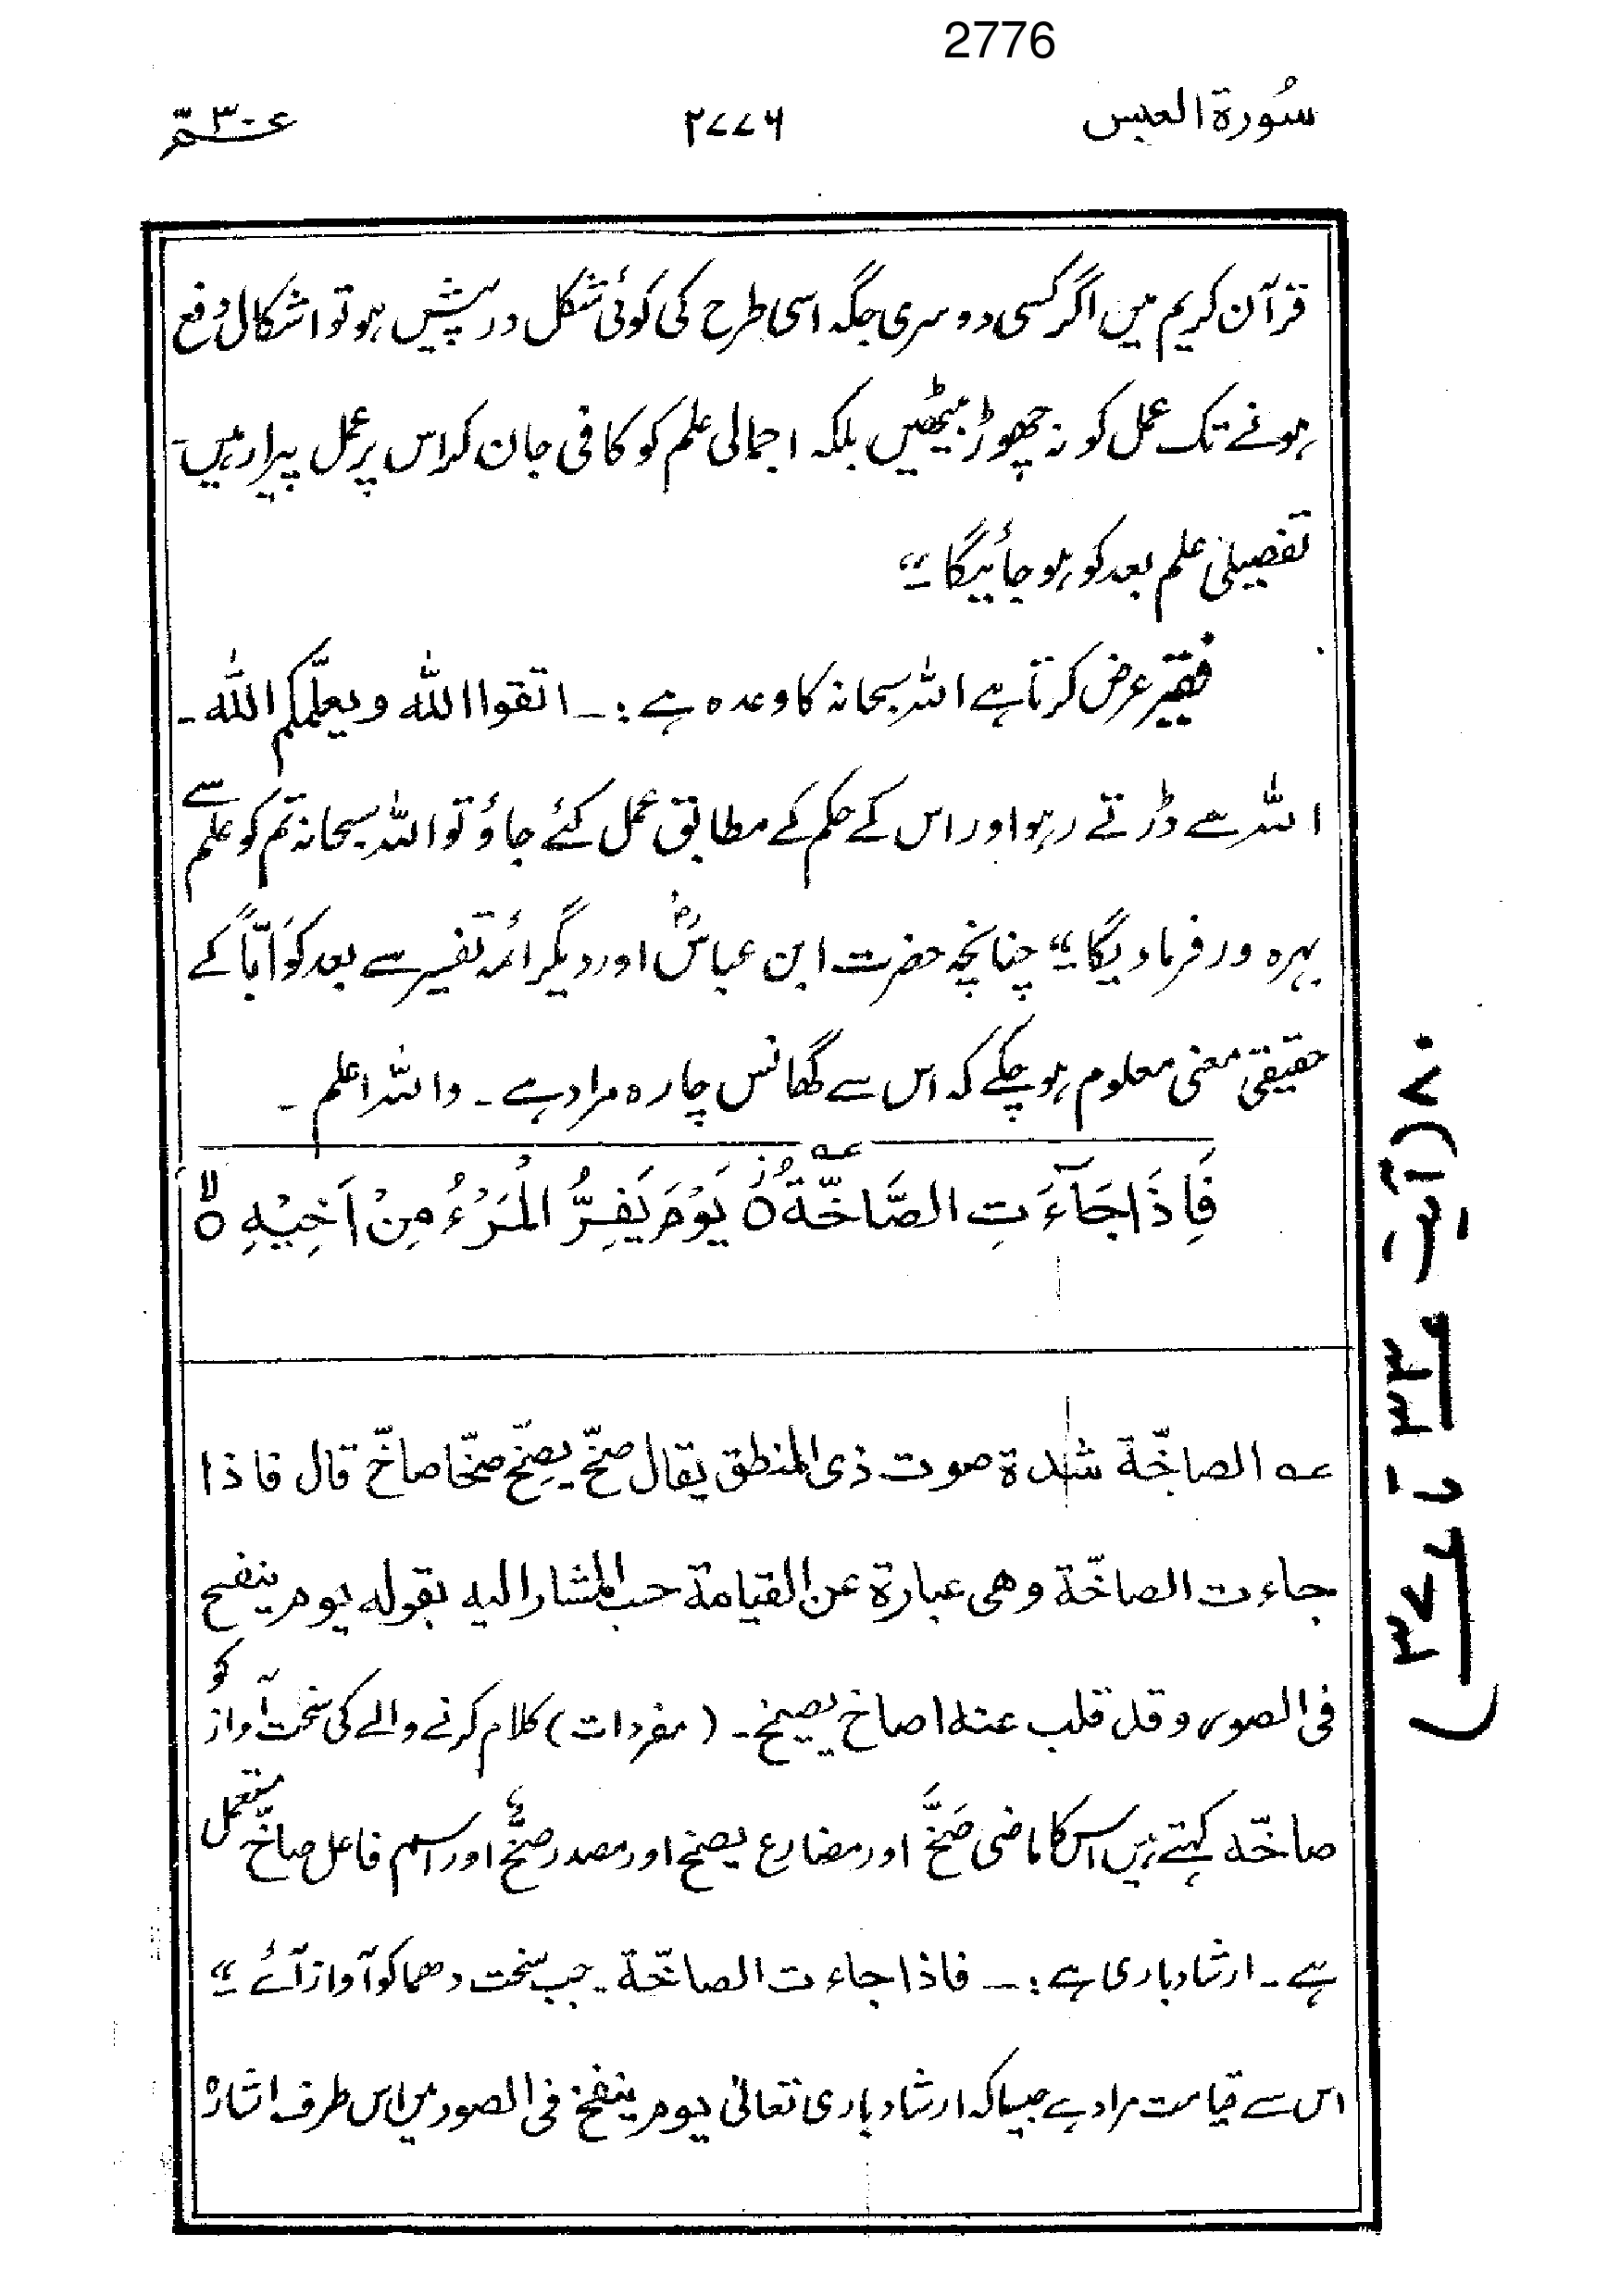 2776
سُورۃ العبس ۲۷۷۶ عمّ ۳۰
قرآن کریم میں اگر کسی دوسری جگہ اسی طرح کی کوئی شکل درپیش ہو تو اشکال رفع
ہونے تک عمل کو نہ چھوڑ بیٹھیں بلکہ اجمالی علم کو کافی جان کر اس پر عمل پیرا رہیں۔
تفصیلی علم بعد کو ہو جائیگا۔"
فقیر عرض کرتا ہے اللہ سبحانہ کا وعدہ ہے :۔ اتقوا اللہ ویعلّمکم اللہ۔
اللہ سے ڈرتے رہو اور اس کے حکم کے مطابق عمل کئے جاؤ تو اللہ سبحانہ تم کو علم سے
بہرہ ور فرما دیگا۔" چنانچہ حضرت ابن عباسؓ اور دیگر ائمہ تفسیر سے بعد کو اَبّاً کے
حقیقی معنی معلوم ہو چکے کہ اس سے گھانس چارہ مراد ہے۔ واللہ اعلم۔
فَاِذَا جَآءَتِ الصَّاخَّةُ عہ ۝ يَوْمَ يَفِرُّ الْمَرْءُ مِنْ اَخِيْهِ ۝ لا
عہ الصاخّة شدة صوت ذی المنطق يقال صخّ يصِخّ صخّا صاخّ قال فاذا
جاءت الصاخّة وھی عبارة عن القيامة حسب المشار اليه بقوله يوم ينفخ
فی الصور وقد قلب عنه اصاخ يصيخ۔ (مفردات) کلام کرنے والے کی سخت آواز کو
صاخّہ کہتے ہیں اس کا ماضی صَخَّ اور مضارع یصخ اور مصدر صخٌّ اور اسم فاعل صاخّ مستعمل
ہے۔ ارشاد باری ہے :۔ فاذا جاءت الصاخّة۔ جب سخت دھماکو آواز آئے۔"
اس سے قیامت مراد ہے جیسا کہ ارشاد باری تعالی یوم ینفخ فی الصور میں اس طرف اشارہ
۸۰ (آیت ۳۳ تا ۳۷)